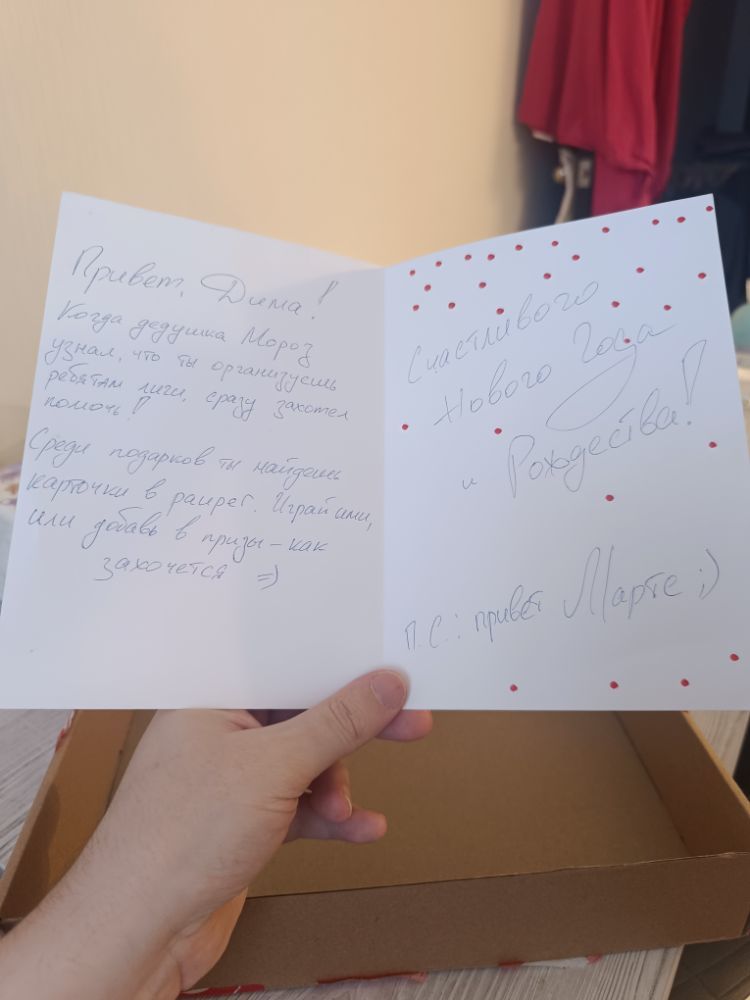 Привет, Дима!
Когда дедушка Мороз
узнал, что ты организуешь
ребятам лиги, сразу захотел
помочь!
Среди подарков ты найдешь
карточки в paupeг. Играй ими,
или добавь в призы – как
захочется =)
Счастливого
Нового Года
и Рождества!
П.С.: привет Марте ;)